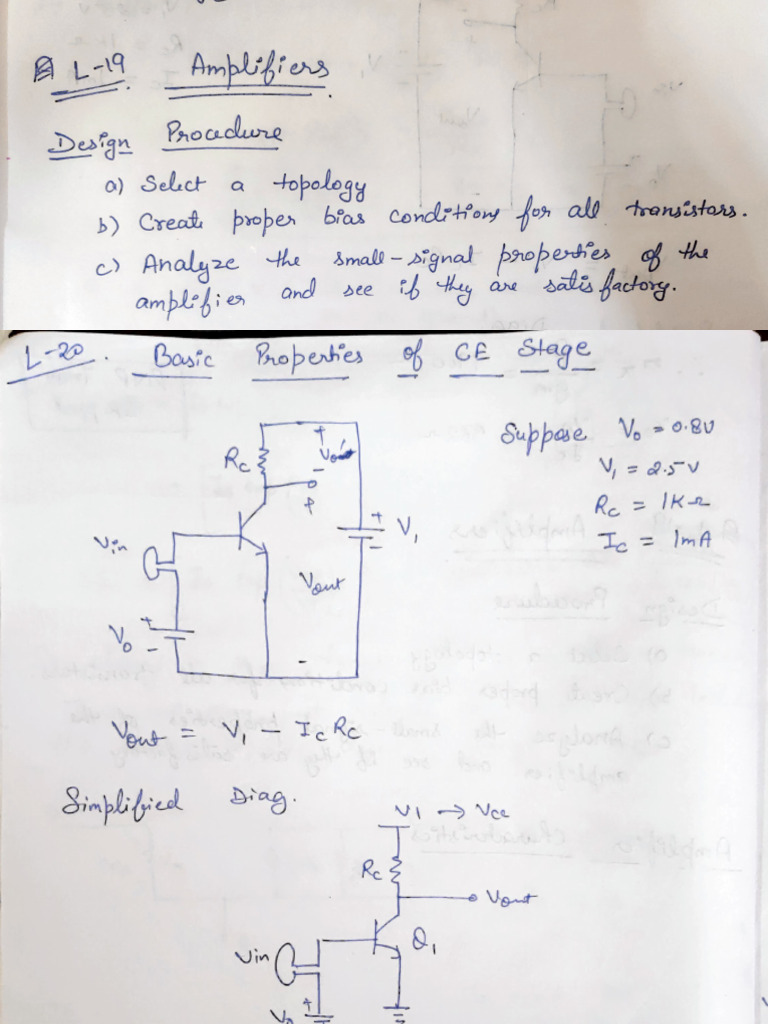 L-19 Amplifiers
Design Procedure
a) Select a topology
b) Create proper bias conditions for all transistors.
c) Analyze the small-signal properties of the
amplifier and see if they are satisfactory.
L-20. Basic Properties of CE Stage
Suppose V₀ = 0.8V
V₁ = 2.5V
Rc = 1KΩ
Ic = 1mA
+
Rc
-
+
Vin
+
-
V₁
Vout
V₀
+
-
-
Vout = V₁ - Ic Rc
Simplified Diag.
V1 → Vcc
Rc
Vout
Vin
Q₁
+
V₀